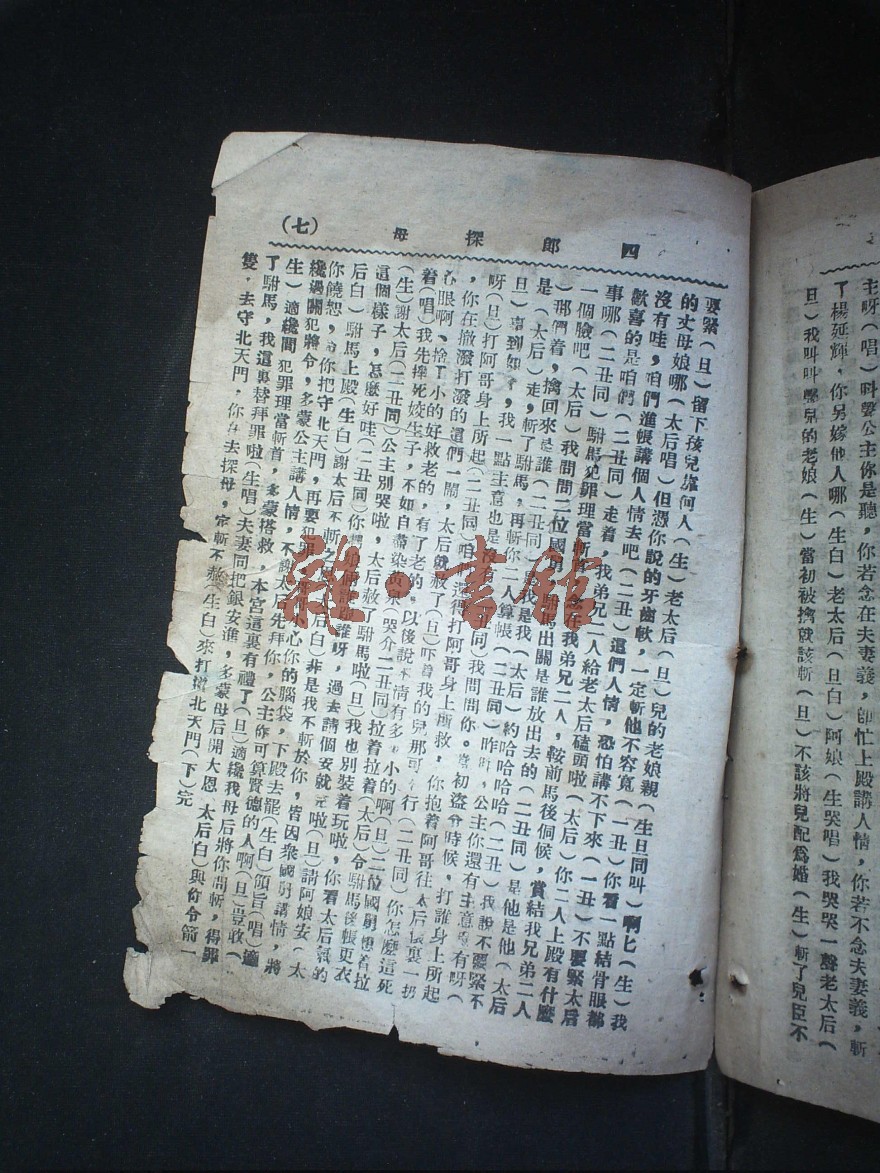 主呀（唱）叫聲公主你是聽，你若念在夫妻義，卽忙上殿講人情，你若不念夫妻義，斬
了楊延輝，你另嫁他人哪（生白）老太后（旦白）阿娘（生哭唱）我哭哭一聲老太后（
旦）我叫叫 兒的老娘（生）當初被擒就該斬（旦）不該將兒配爲婚（生）斬了兒臣不
四郎探母
（七）
要緊（旦）留下孩兒靠何人（生）老太后（旦）兒的老娘親（生旦同叫）啊 （生）我
的丈母娘哪（太后唱）但憑你說的牙齒軟，一定斬他不容寬（一丑）你看一點結骨眼都
沒有哇，咱們進帳講個人情去吧（二丑）這們人情，恐怕講不下來（一丑）不要緊太后
歡喜的是咱們（二丑同）走着，我弟兄二人給老太后磕頭啦（太后）你二人上殿有什麼
事哪（二丑同）駙馬犯罪理當斬 念在我弟兄二人，鞍前馬後伺候，賞結我兄弟二人
一個臉吧（太后）我問問二位國舅 駙馬出關是誰放出去的（二丑同）是他是他（太后
）那們着，擒回來是誰（二丑同） 我是我（太后）約哈哈哈哈（二丑）我 不要緊不
是（太后）走，斬了駙馬，再斬你二人算帳（二丑同） ，公主你還有主意 有呀（
旦）事到如 ，我一點主意也是沒有 丑同）我問問你。當初盜令時候，打誰身上所起
呀（旦）打阿哥身上所起（二丑同）咱 還得打阿哥身上所救，你抱着阿哥往太后懷裏一扔
，你在撒潑打滾的這們一鬧，太后就赦了（旦）吓着我的兒那可 行（二丑同）你怎麼這死
心眼啊、捨了小的好救老的，有了老的，以後說 情有多 小的啊（旦）二位國舅 着拉
着（唱）我先摔死姣生子，不如自盡染黃泉（哭介二丑同）拉着拉着（太后）令駙馬後帳更衣
（生）謝太后（二丑同）公主別哭啦，太后赦了駙馬啦（旦）我也別裝着玩啦，你看太后氣的
這個樣子，怎麼好哇（二丑同）你 誰呀，過去請個安就完啦（旦）請阿娘安（太
后白）駙馬上殿（生白）謝太后不斬之 后白）非是我不斬於你，皆因衆國舅講情，將
你饒恕， 你把守北天門，再要犯罪， 小心你的腦袋，下殿去罷（生白）領旨（唱）適
纔過關犯將令，多蒙公主講人情，不謝太后先拜你，公主你可算賢德的人啊（旦）豈敢（
生）適纔間犯罪理當斬首，多蒙搭救，本宮這裏有禮了（旦）適纔我母后將你問斬，得罪
了駙馬，我這裏替拜罪啦（生唱）夫妻同把銀安進，多蒙母后開大恩 太后白）與你令箭一
隻，去守北天門，你 去探母，定斬不赦 生白）來打 北天門（下）完
雜·書館